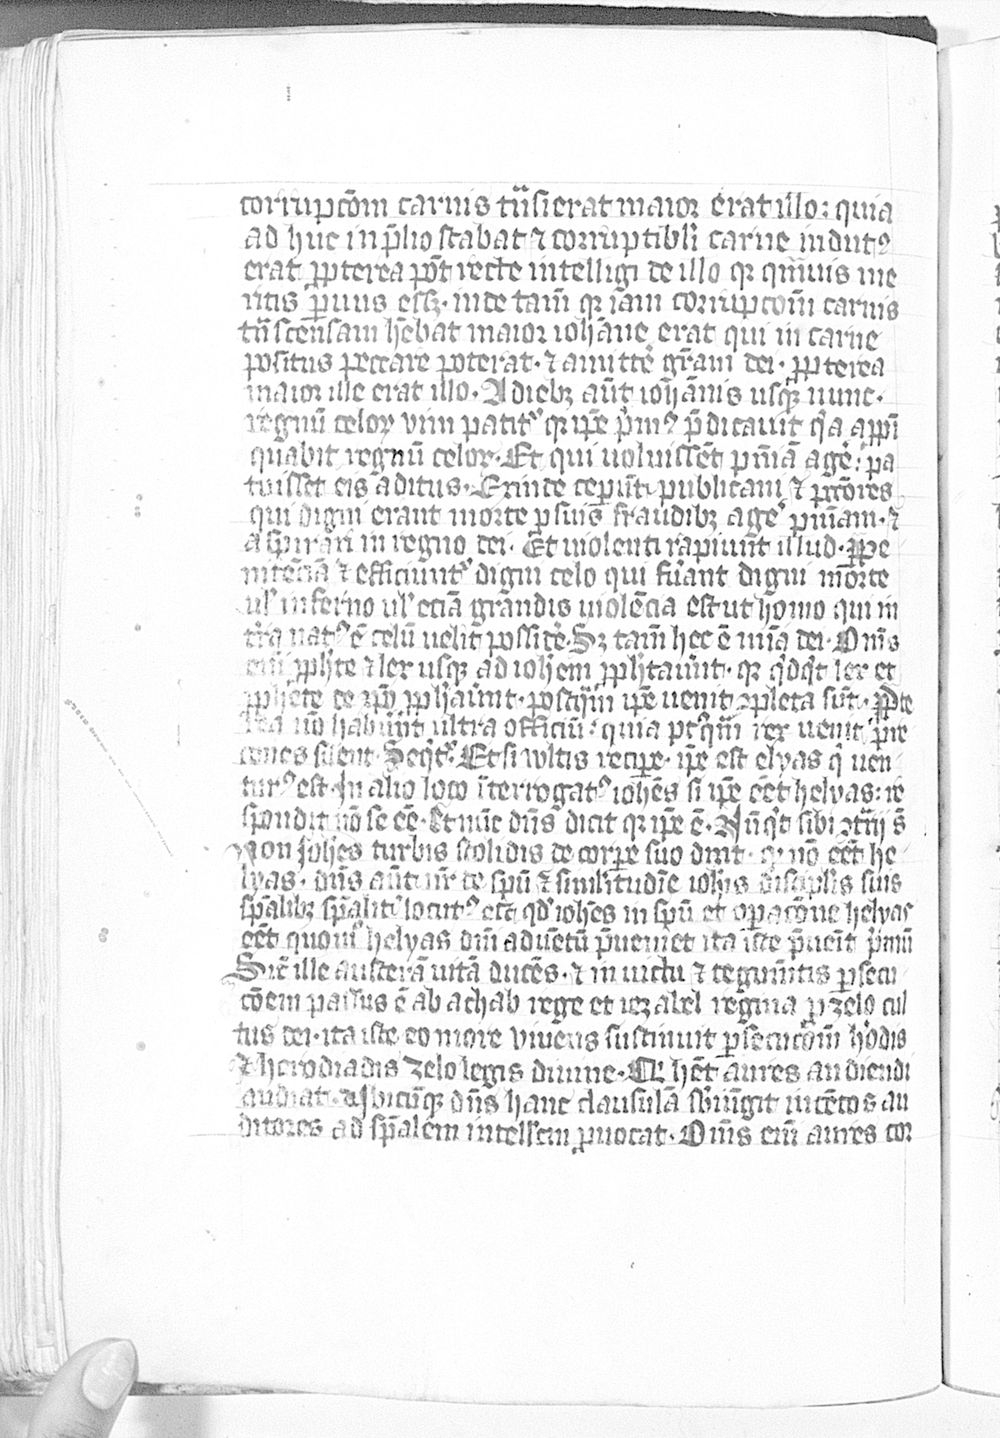 corrupcōm carnis tn̄sierat maior erat illo: quia
ad huc in p̄lio stabat ⁊ corruptibli carne indutꝰ
erat ꝓpterea pōt recte intelligi de illo qꝛ qm̄uis me
ritis paruus essꝫ. inde tam̄ qꝛ iam corrupcom̄ carnis
tn̄scensam hēbat maior ioh̄āne erat qui in carne
positus peccare poterat. ⁊ amittē gr̄am dei. ꝓpterea
maior ille erat illo. A diebꝫ aūt ioh̄annis usqꝫ nunc.
regnū celoꝝ vim patitˀ qꝛ ip̄e p̄mꝰ p̄dicauit qͥa appͥn
quabit regnū celoꝝ. Et qui uoluissēt pn̄iā agē: pa
tuisset eis aditus. Exinde cepūt publicani ⁊ pctōres
qui digni erant morte ꝓ suis fraudibꝫ agē pn̄iam. ⁊
aspirari in regno dei. Et uiolenti rapiunt illud. ꝓ pe
nitēciā ⁊ efficiūntˀ digni celo qui fuāant digni morte
ulˀ inferno ulˀ eciā grandis uiolēcia est ut homo qui in
tr̄a natꝰ ē celū uelit possidē. Sꝫ tam̄ hec ē uiā dei. Om̄s
em̄ ꝓph̄te ⁊ lex usqꝫ ad ioh̄em ꝓph̄tauūt. qꝛ qͥdqͥt lex et
ꝓphete de xp̄o ꝓph̄auūt. postqͣm ip̄e uenit ꝯpleta sūt. ꝓpte
rea nō habūut ultra officiū: quia pt̄qͣm rex uenit p̄re
cones silent. Seqͥtˀ. Et si wltis recipe. ip̄e est elyas qͥ uen
turꝰ est. In alio loco īterrogatꝰ ioh̄es si ip̄e eēt helyas: re
spondit nō se eē. Et nūc dn̄s dicit qꝛ ip̄e ē. Nūqͥd sibi ꝯtrͥij s̄
Non joh̄es turbis stolidis de corꝑe suo dixit. qꝛ nō eēt he
lyas. dn̄s aūt nr̄ de spū ⁊ similitudīe ioh̄is discip̄lis suis
sp̄alibꝫ sp̄alitˀ locutꝰ est qd̄ ioh̄es in spū et opacōne helyas
eēt quomō helyas dn̄i aduētū p̄ueniet ita iste p̄uēit p̄mū
Sic̄ ille austerā uitā ducēs. ⁊ in uictu ⁊ tegum̄tis ꝑsecu
cōem passus ē ab achab rege et iezabel regina ꝑ zelo cul
tus dei. ita iste eo more viuens sustinuit ꝑsecucōm h̄odis
⁊ herodiadis zelo legis diuine. Qͥ hēt aures audiendi
audiat. Ubicūqꝫ dn̄s hanc clausulā sͣbiūgit intētos au
ditores ad sp̄alem intellem̄ ꝓuocat. Om̄s em̄ aures cor